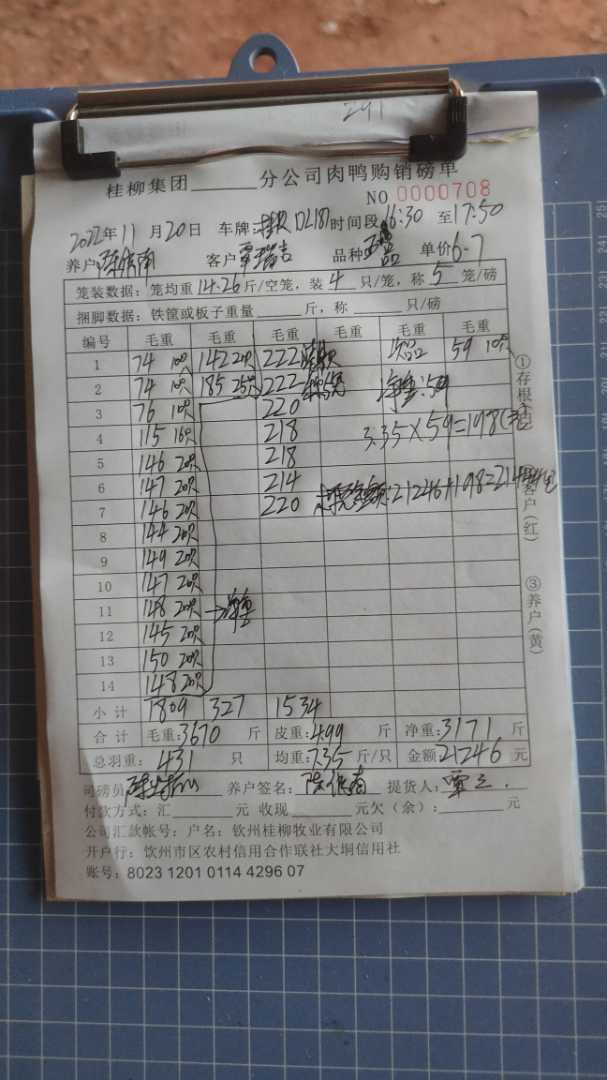 291
桂柳集团 分公司肉鸭购销磅单
NO 0000708
2022年11月20日 车牌: DL187 时间段16:30 至17:50
养户: 南 客户 覃 品种 单价6-7
笼装数据:笼均重14.26斤/空笼,装4只/笼,称5笼/磅
捆脚数据:铁筐或板子重量 斤,称 只/磅
编号 毛重 毛重 毛重 毛重 毛重 毛重
1 74 10只 142 20只 222 次品 59 10只
2 74 10只 185 25只 222 净重:59
3 76 10只 220
4 115 16只 218 3.35×59=198
5 146 20只 218
6 147 20只 214 21246+198=
7 146 20只 220
8 144 20只
9 149 20只
10 147 20只
11 148 20只
12 145 20只
13 150 20只
14 148 20只
小计 1809 327 1534
合计 毛重:3670斤 皮重:499斤 净重:3171斤
总羽重:431只 均重:7.35斤/只 金额:21246元
司磅员: 养户签名: 提货人:覃
付款方式:汇 元 收现 元欠(余): 元
公司汇款帐号:户名:钦州桂柳牧业有限公司
开户行:饮州市区农村信用合作联社大垌信用社
账号:8023 1201 0114 4296 07
①存根(白)
②客户(红)
③养户(黄)